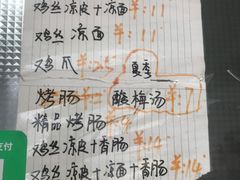 鸡丝凉皮+凉面 ¥:11
鸡丝凉面 ¥:11
鸡爪 ¥:25
夏季
烤肠 酸梅汤 ¥:7
精品烤肠
鸡丝凉皮+香肠 ¥:14
鸡丝凉面+香肠 ¥:14
支付